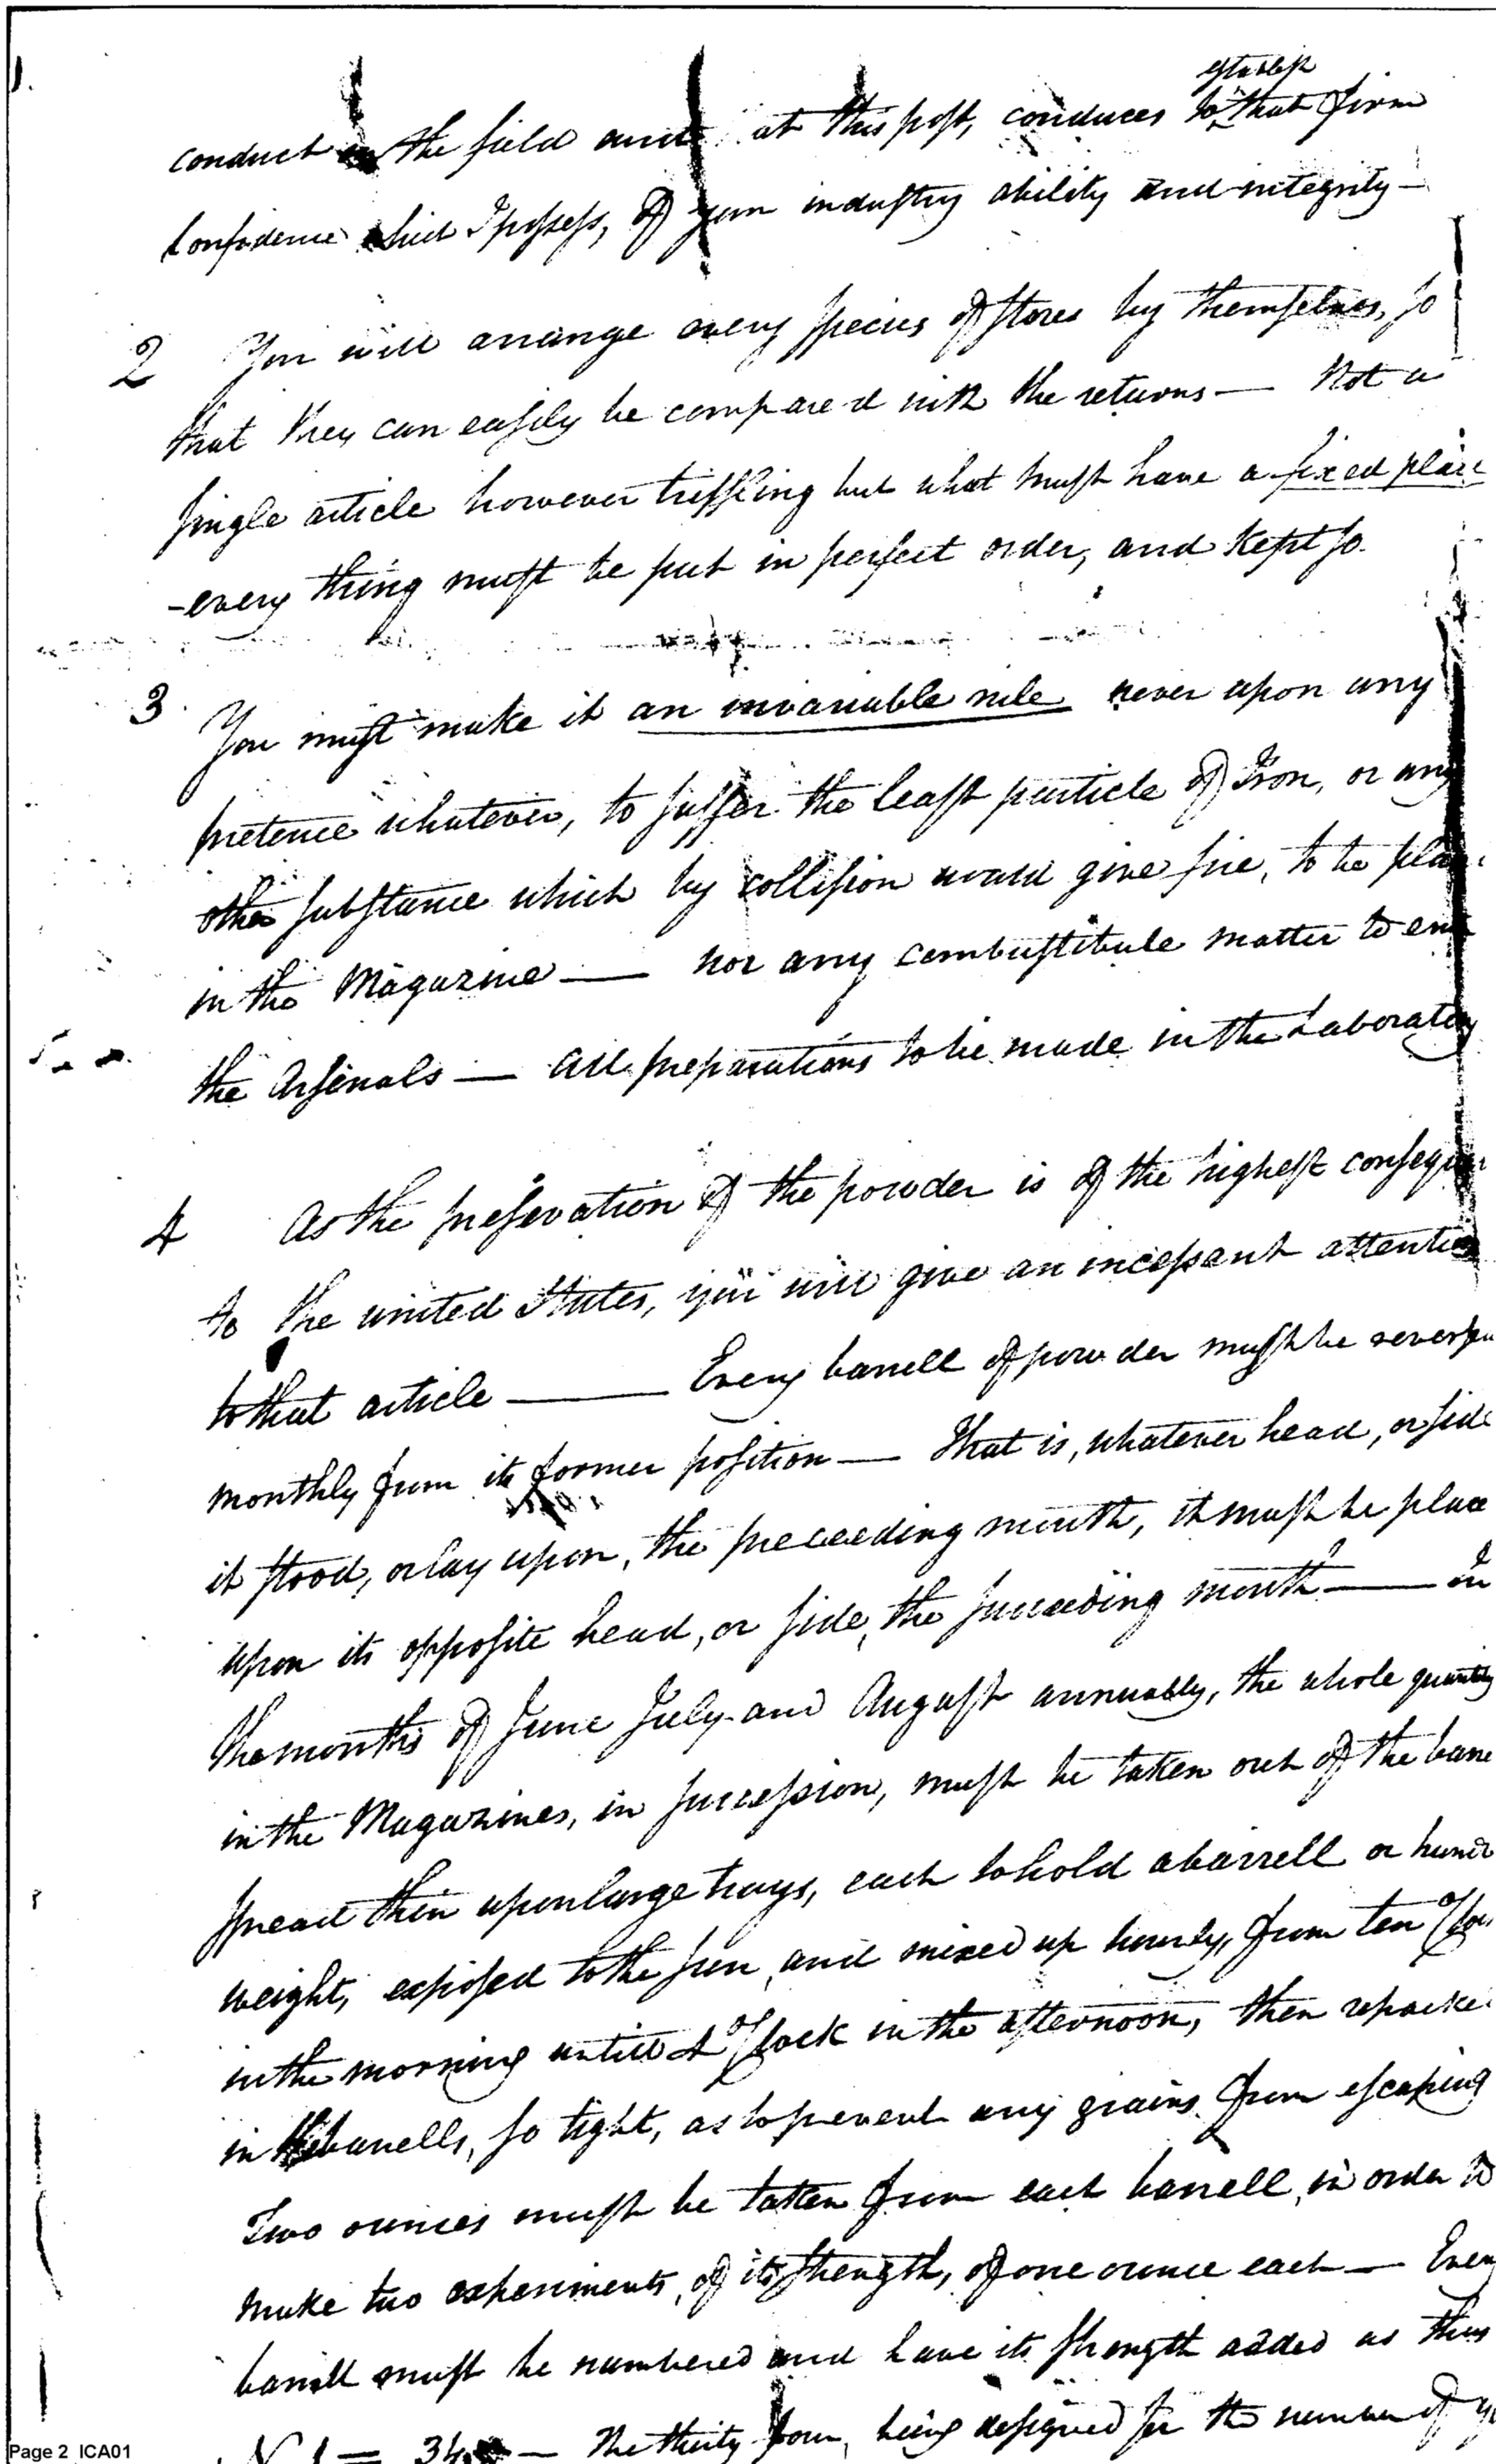 1.
establish
conduct in the field and at this post, conduces to that firm
Confidence which I possess, of your industry ability and integrity —
2 You will arrange every species of stores by themselves, so
that they can easily be compared with the returns — Not a
single article however triffling but what must have a fixed place
- every thing must be put in perfect order, and kept so.
3. You must make it an invariable rule never upon any
pretence whatever, to suffer the least particle of Iron, or any
other substance which by collision would give fire, to be
in the Magazine — nor any combustibule matter to
the Arsenals — All preparations to be made in the Laboratory
4 As the preservation of the powder is of the highest
to the united States, you will give an incessant attention
to that article — Every barrell of powder must be
monthly from its former position — That is, whatever head, or side
it stood, or lay upon, the preceeding month, it must be place
upon its opposite head, or side, the succeeding month — In
the months of June July and August annually, the whole quantity
in the Magazines, in succession, must be taken out of the
spread thin upon large trays, each to hold a barrell or
weight, exposed to the sun, and mixed up hourly, from ten
in the morning untill 4 o'Clock in the afternoon, then
in barrells, so tight, as to prevent any grains from escaping
Two ounces must be taken from each barrell, in order to
make two experiments, of its strength, of one ounce each — Every
barrell must be numbered and have its strength added as thus
N 1 = 34 — The thirty four, being designed for the number of
Page 2 ICA01